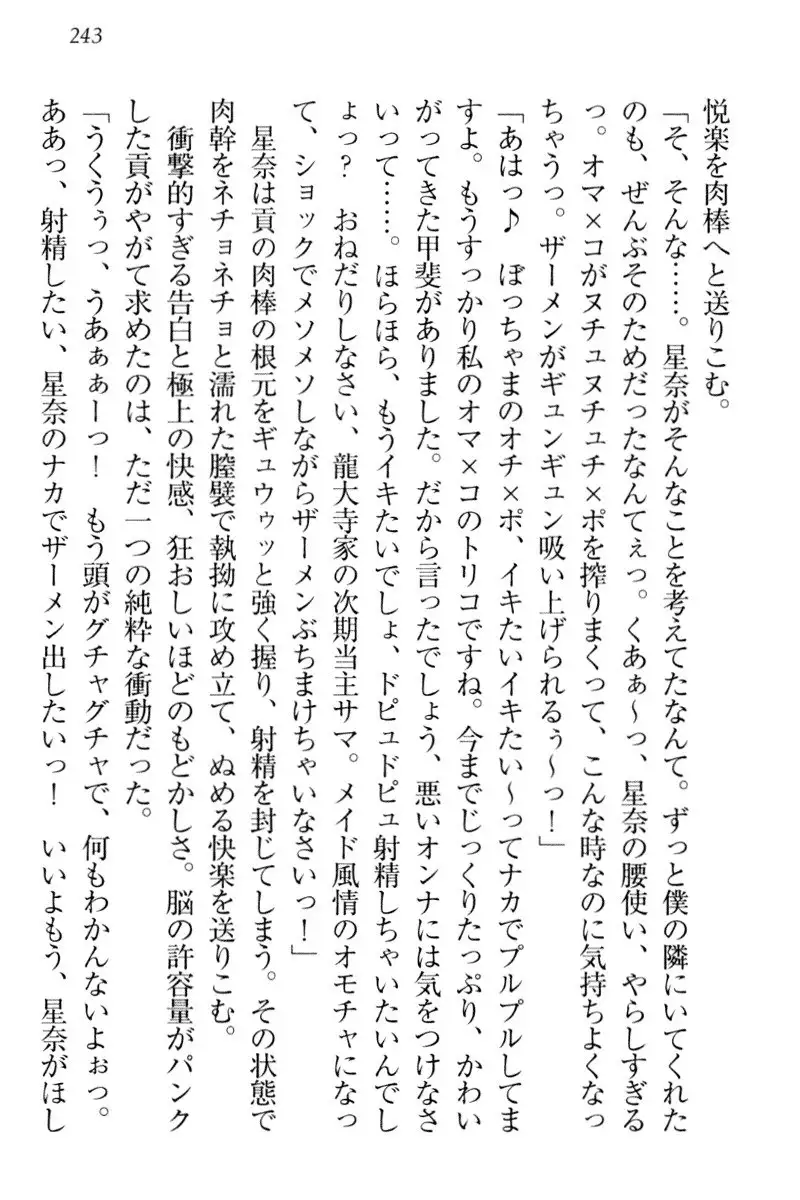 243
悦楽を肉棒へと送りこむ。
「そ、そんな……。星奈がそんなことを考えてたなんて。ずっと僕の隣にいてくれた
のも、ぜんぶそのためだったなんてぇっ。くあぁ～っ、星奈の腰使い、やらしすぎる
っ。オマ×コがヌチュヌチュチ×ポを搾りまくって、こんな時なのに気持ちよくなっ
ちゃうっ。ザーメンがギュンギュン吸い上げられるぅ～っ！」
「あはっ♪　ぼっちゃまのオチ×ポ、イキたいイキたい～ってナカでプルプルしてま
すよ。もうすっかり私のオマ×コのトリコですね。今までじっくりたっぷり、かわい
がってきた甲斐がありました。だから言ったでしょう、悪いオンナには気をつけなさ
いって……。ほらほら、もうイキたいでしょ、ドピュドピュ射精しちゃいたいんでし
ょっ？　おねだりしなさい、龍大寺家の次期当主サマ。メイド風情のオモチャになっ
て、ショックでメソメソしながらザーメンぶちまけちゃいなさいっ！」
　星奈は貢の肉棒の根元をギュウゥッと強く握り、射精を封じてしまう。その状態で
肉幹をネチョネチョと濡れた膣襞で執拗に攻め立て、ぬめる快楽を送りこむ。
　衝撃的すぎる告白と極上の快感、狂おしいほどのもどかしさ。脳の許容量がパンク
した貢がやがて求めたのは、ただ一つの純粋な衝動だった。
「うくうぅっ、うあぁぁーっ！　もう頭がグチャグチャで、何もわかんないよぉっ。
ああっ、射精したい、星奈のナカでザーメン出したいっ！　いいよもう、星奈がほし